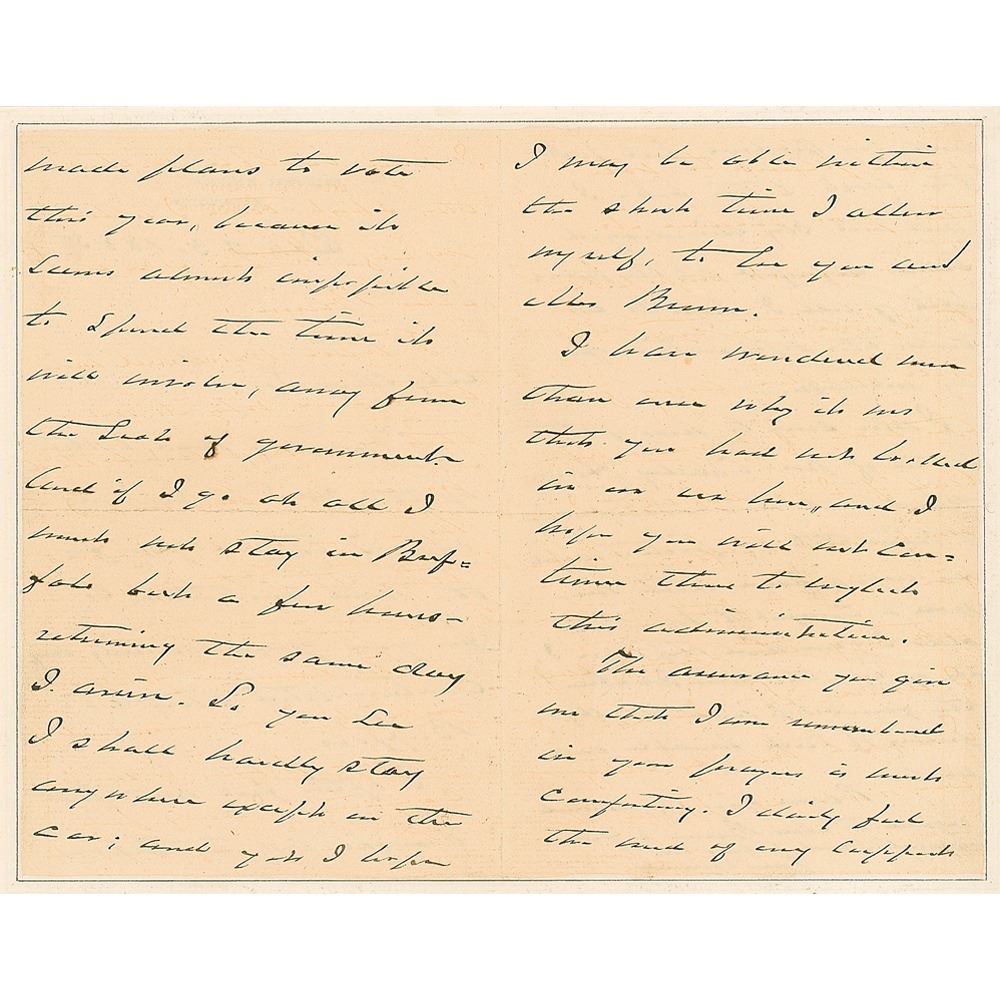 made plans to vote
this year, because it
seems almost impossible
to spend the time it
will involve, away from
the Seat of government.
And if I go at all I
must not stay in Buf=
falo but a few hours—
returning the same day
I arrive. So you see
I shall hardly stay
anywhere except in the
car; and yet I hope
I may be able within
the short time I allow
myself, to see you and
Mrs
I have wondered more
than ever why it was
that you had not
in on us here, and I
hope you will not con=
tinue thus to neglect
this administration.
The assurance you give
me that I am remembered
in your prayers is most
comforting. I daily feel
the need of any support